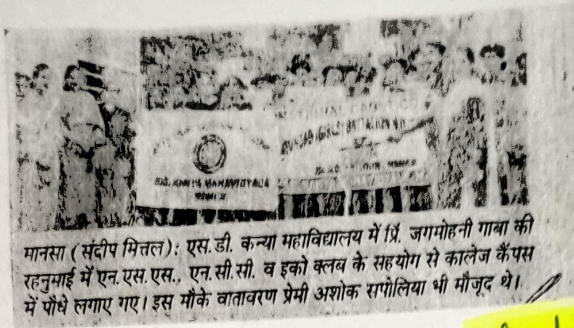 S.D. KANYA MAHAVIDYALA
मानसा (संदीप मित्तल): एस.डी. कन्या महाविद्यालय में प्रिं. जगमोहनी गाबा की
रहनुमाई में एन.एस.एस., एन.सी.सी. व इको क्लब के सहयोग से कालेज कैंपस
में पौधे लगाए गए। इस मौके वातावरण प्रेमी अशोक सपोलिया भी मौजूद थे।